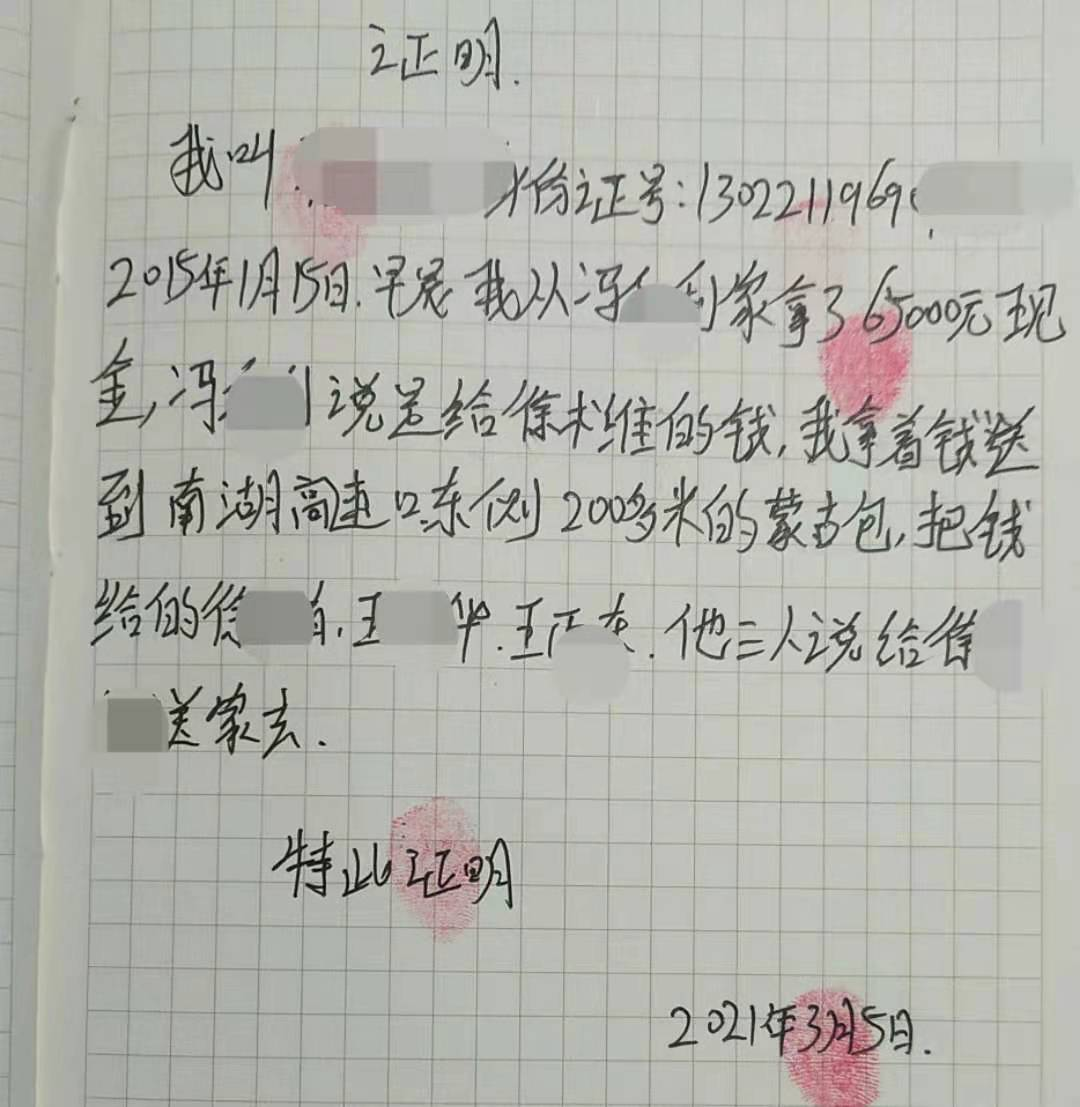 证明.
我叫 身份证号:1302211969
2015年1月15日.早晨我从冯 到家拿了65000元现
金,冯 说是给徐术维的钱,我拿着钱送
到南湖高速口东侧200多米的蒙古包,把钱
给的徐 .王 华.王正东.他三人说给徐
送家去.
特此证明
2021年3月5日.